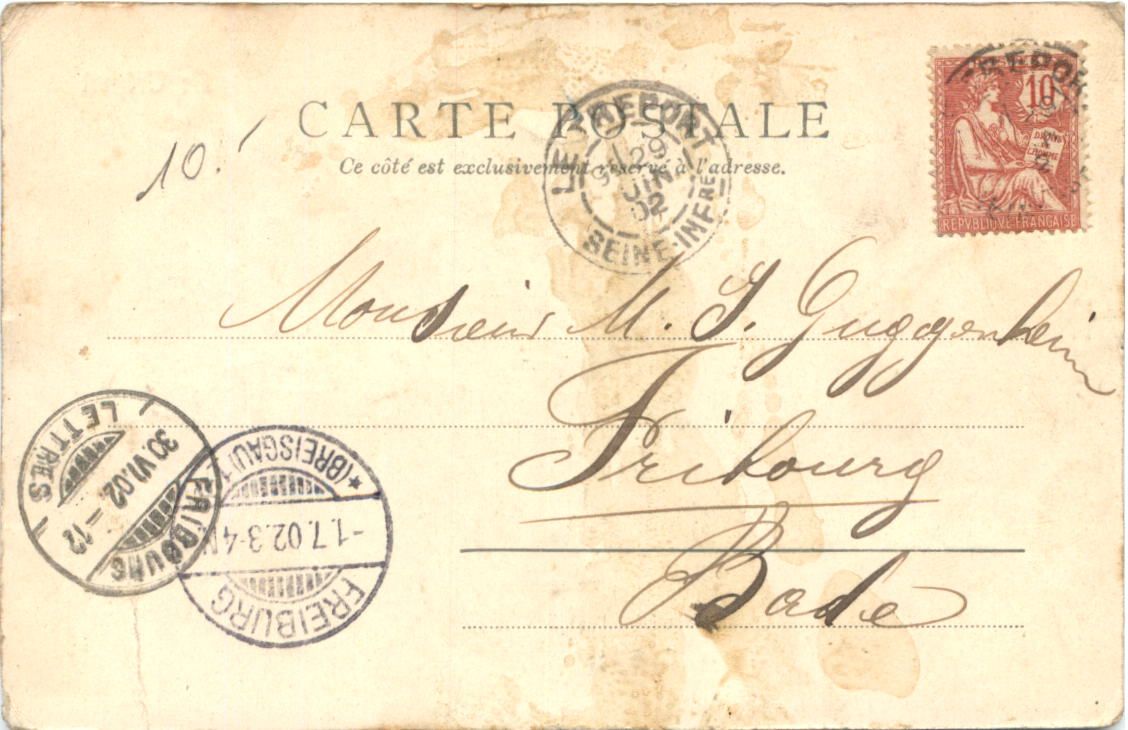 CARTE POSTALE
Ce côté est exclusivement réservé à l'adresse.
10.
LE TREPORT
29
JUIN
02
SEINE-INFRE
10
DROITS DE L'HOMME
REPVBLIQVE FRANÇAISE
Monsieur M. S. Guggenheim
Fribourg
Bade
LETTRES
30.VI.02.-12
FRIBOURG
FREIBURG
-1.7.02.3-4N
*(BREISGAU)